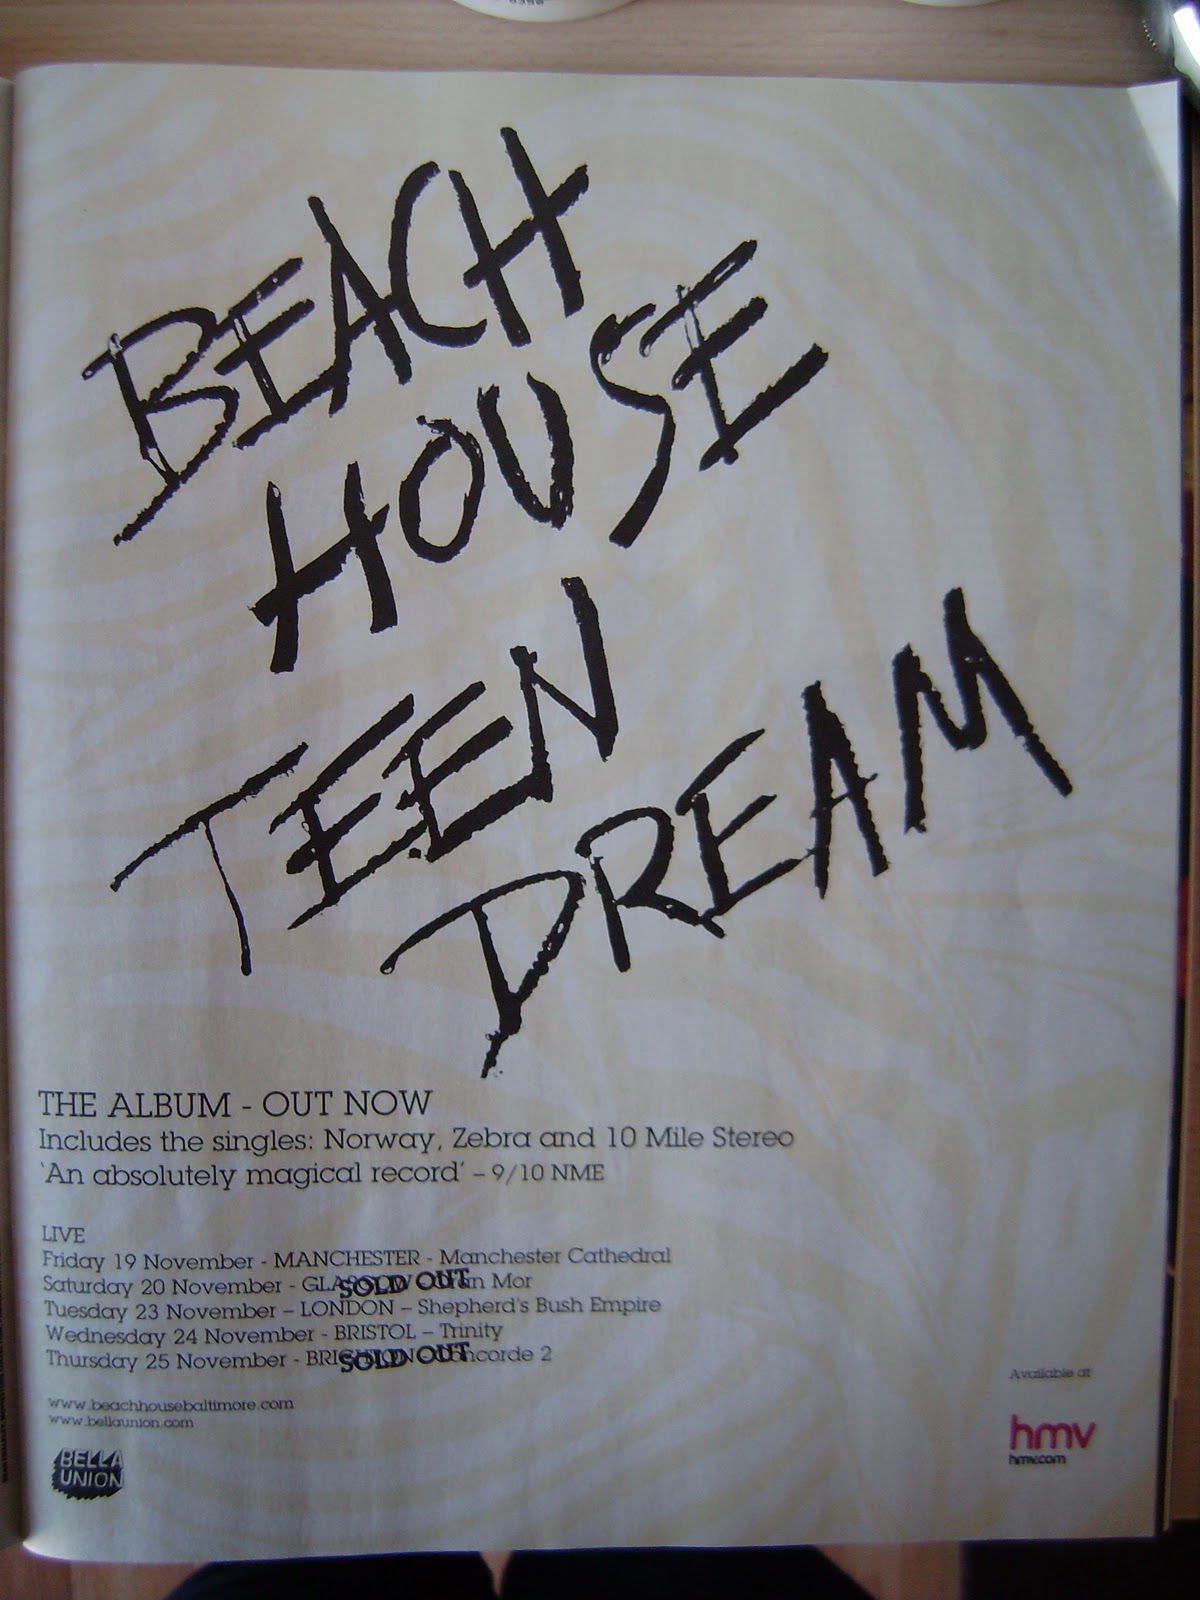 BEACH
HOUSE
TEEN
DREAM
THE ALBUM - OUT NOW
Includes the singles: Norway, Zebra and 10 Mile Stereo
'An absolutely magical record' – 9/10 NME
LIVE
Friday 19 November - MANCHESTER - Manchester Cathedral
Saturday 20 November - GLASGOW SOLD OUT Oran Mor
Tuesday 23 November – LONDON – Shepherd's Bush Empire
Wednesday 24 November - BRISTOL – Trinity
Thursday 25 November - BRIGHTON SOLD OUT Concorde 2
www.beachhousebaltimore.com
www.bellaunion.com
BELLA
UNION
Available at
hmv
hmv.com